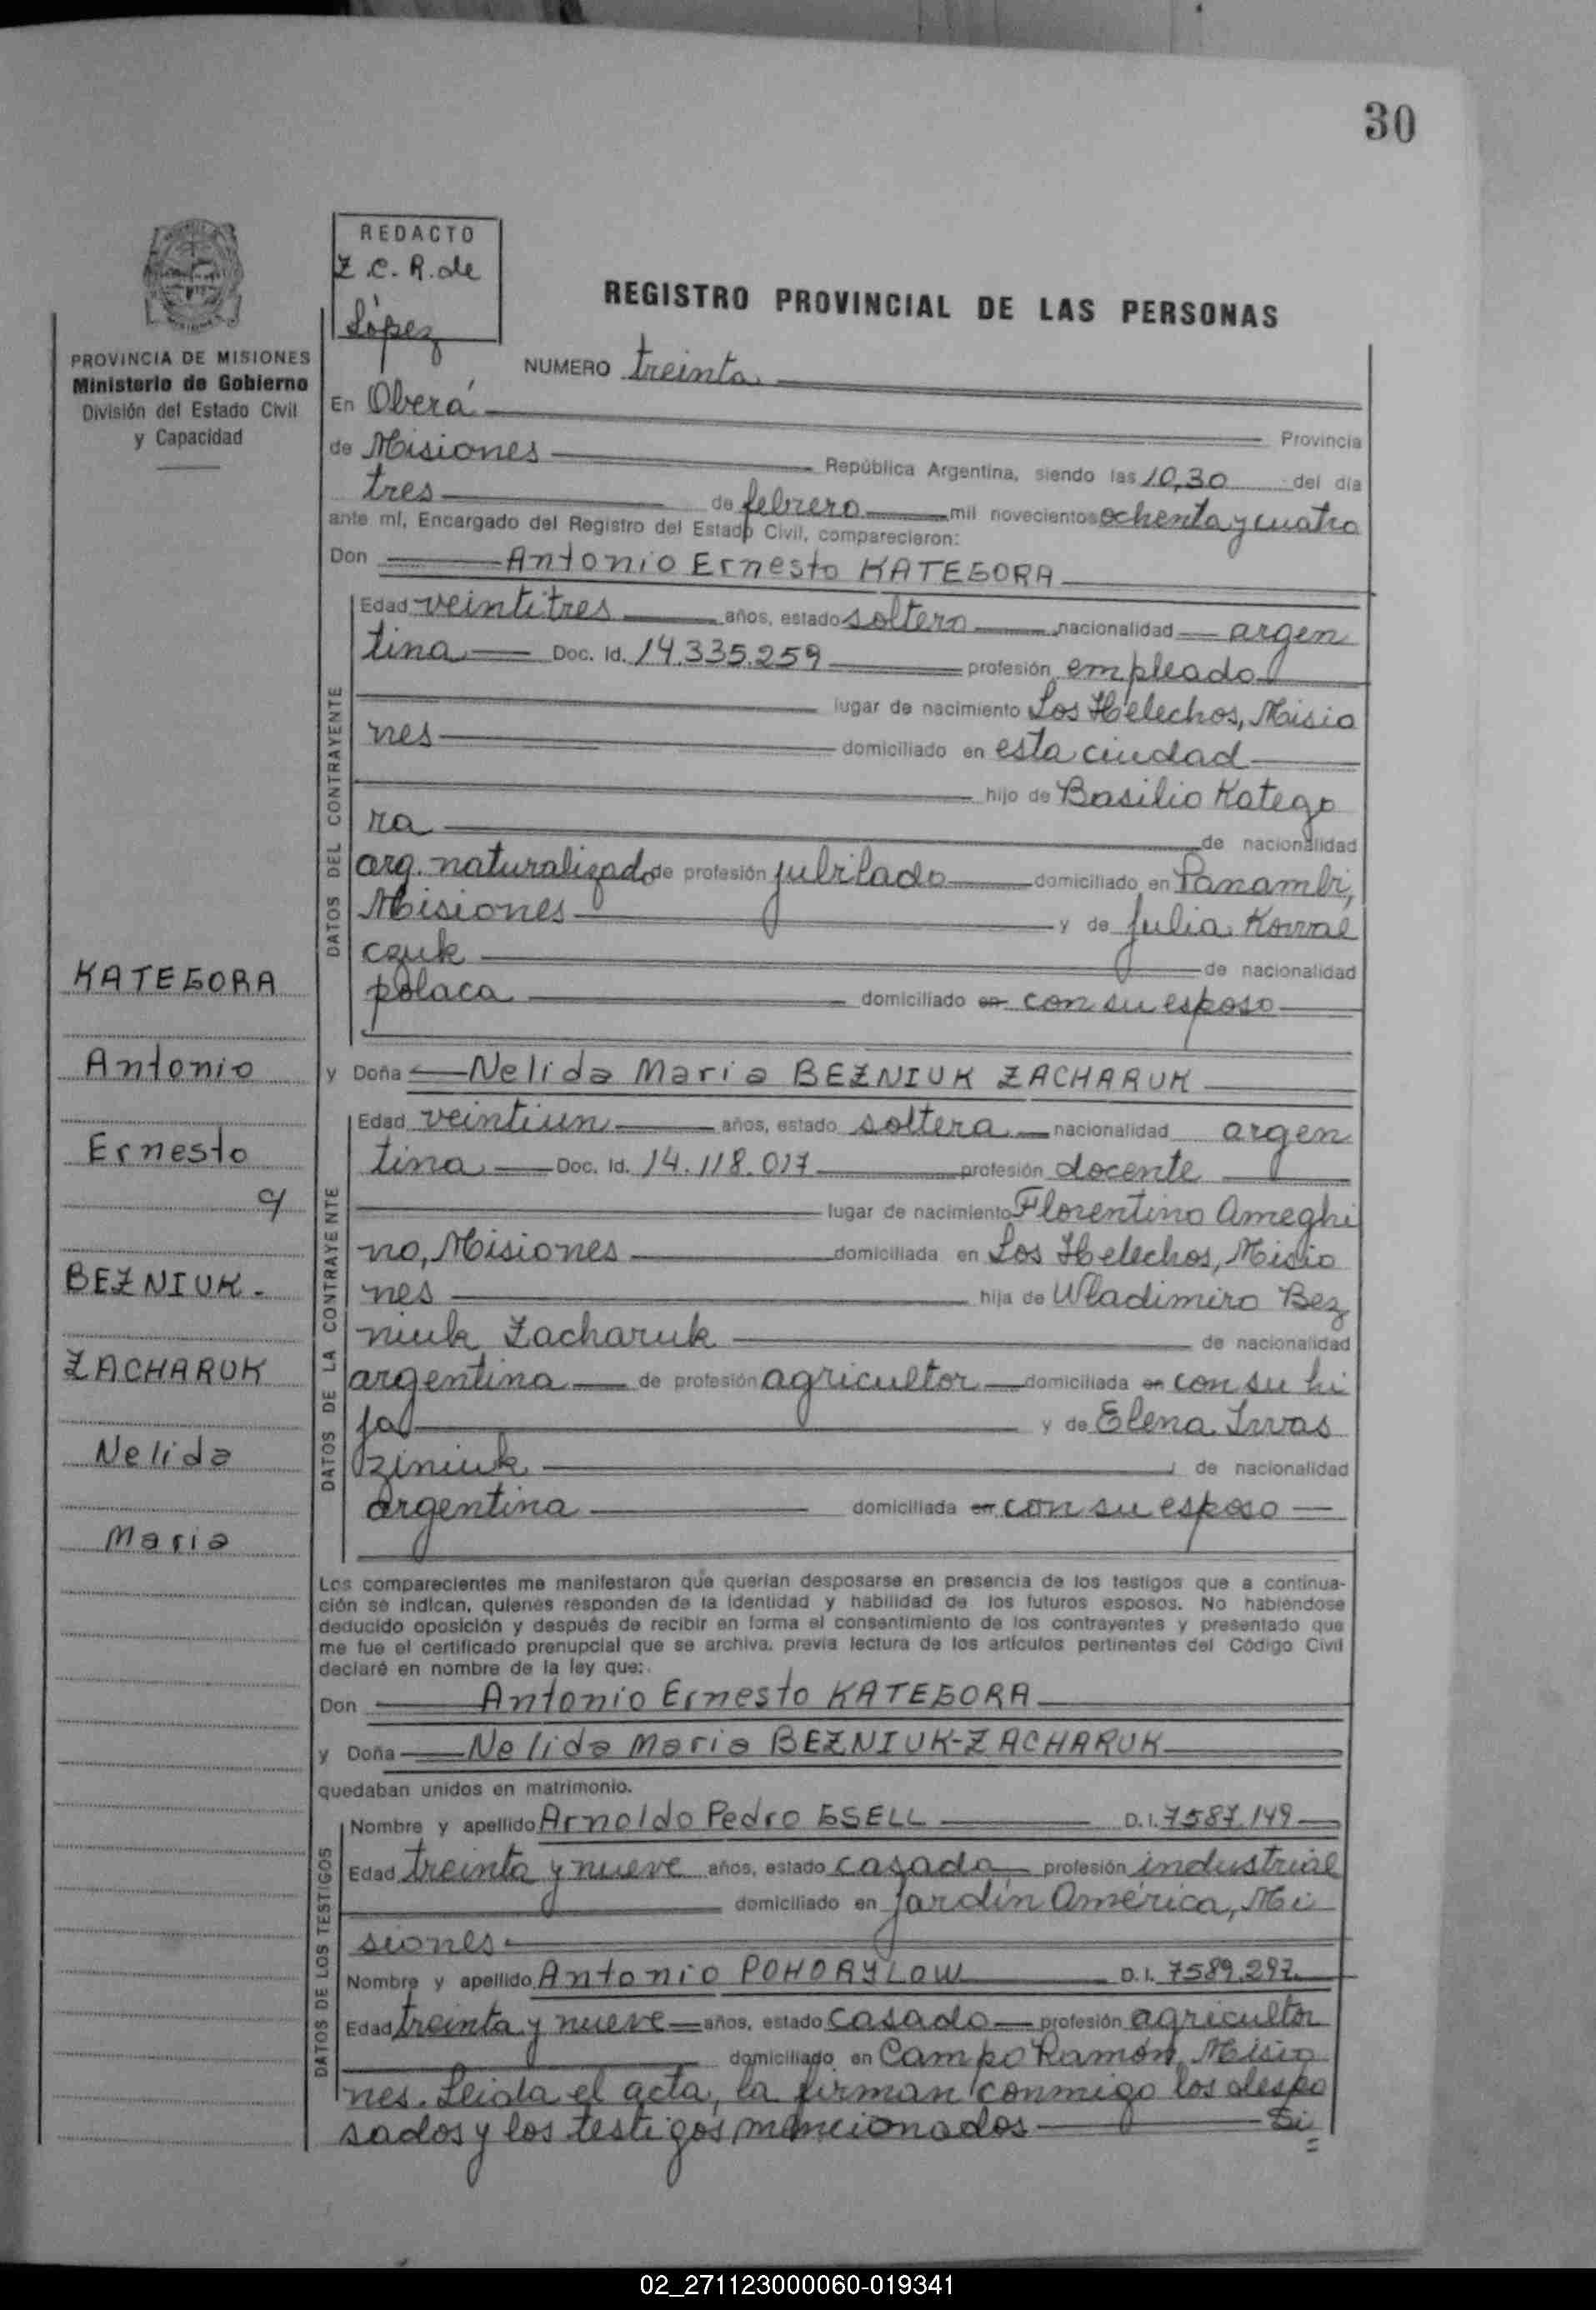 30
REDACTO
Z.C.R. de
López
REGISTRO PROVINCIAL DE LAS PERSONAS
PROVINCIA DE MISIONES
Ministerio de Gobierno
División del Estado Civil
y Capacidad
NUMERO treinta
En Oberá Provincia
de Misiones República Argentina, siendo las 10,30 del día
tres de febrero mil novecientos ochenta y cuatro
ante mí, Encargado del Registro del Estado Civil, comparecieron:
Don Antonio Ernesto KATEGORA
DATOS DEL CONTRAYENTE
Edad veintitres años, estado soltero nacionalidad argen
tina Doc. Id. 14.335.259 profesión empleado
lugar de nacimiento Los Helechos, Misio
nes domiciliado en esta ciudad
hijo de Basilio Katego
ra de nacionalidad
arg. naturalizado de profesión jubilado domiciliado en Panambi,
Misiones y de Julia Kowal
czuk de nacionalidad
polaca domiciliado en con su esposo
KATEGORA
Antonio
Ernesto
y
BEZNIUK-
ZACHARUK
Nelida
Maria
y Doña Nelida Maria BEZNIUK ZACHARUK
DATOS DE LA CONTRAYENTE
Edad veintiun años, estado soltera nacionalidad argen
tina Doc. Id. 14.118.017 profesión docente
lugar de nacimiento Florentino Ameghi
no, Misiones domiciliada en Los Helechos, Misio
nes hija de Wladimiro Bez
niuk Zacharuk de nacionalidad
argentina de profesión agricultor domiciliada en con su hi
ja y de Elena Iwas
ziniuk de nacionalidad
argentina domiciliada en con su esposo
Los comparecientes me manifestaron que querían desposarse en presencia de los testigos que a continua-
ción se indican, quienes responden de la identidad y habilidad de los futuros esposos. No habiéndose
deducido oposición y después de recibir en forma el consentimiento de los contrayentes y presentado que
me fue el certificado prenupcial que se archiva, previa lectura de los artículos pertinentes del Código Civil
declaré en nombre de la ley que:
Don Antonio Ernesto KATEGORA
y Doña Nelida Maria BEZNIUK-ZACHARUK
quedaban unidos en matrimonio.
DATOS DE LOS TESTIGOS
Nombre y apellido Arnoldo Pedro GSELL D.I. 7587.149
Edad treinta y nueve años, estado casado profesión industrial
domiciliado en Jardín América, Mi
siones
Nombre y apellido Antonio POHORYLOW D.I. 7589.297
Edad treinta y nueve años, estado casado profesión agricultor
domiciliado en Campo Ramón, Misio
nes. Leida el acta, la firman conmigo los despo
sados y los testigos mencionados Si
02_271123000060-019341